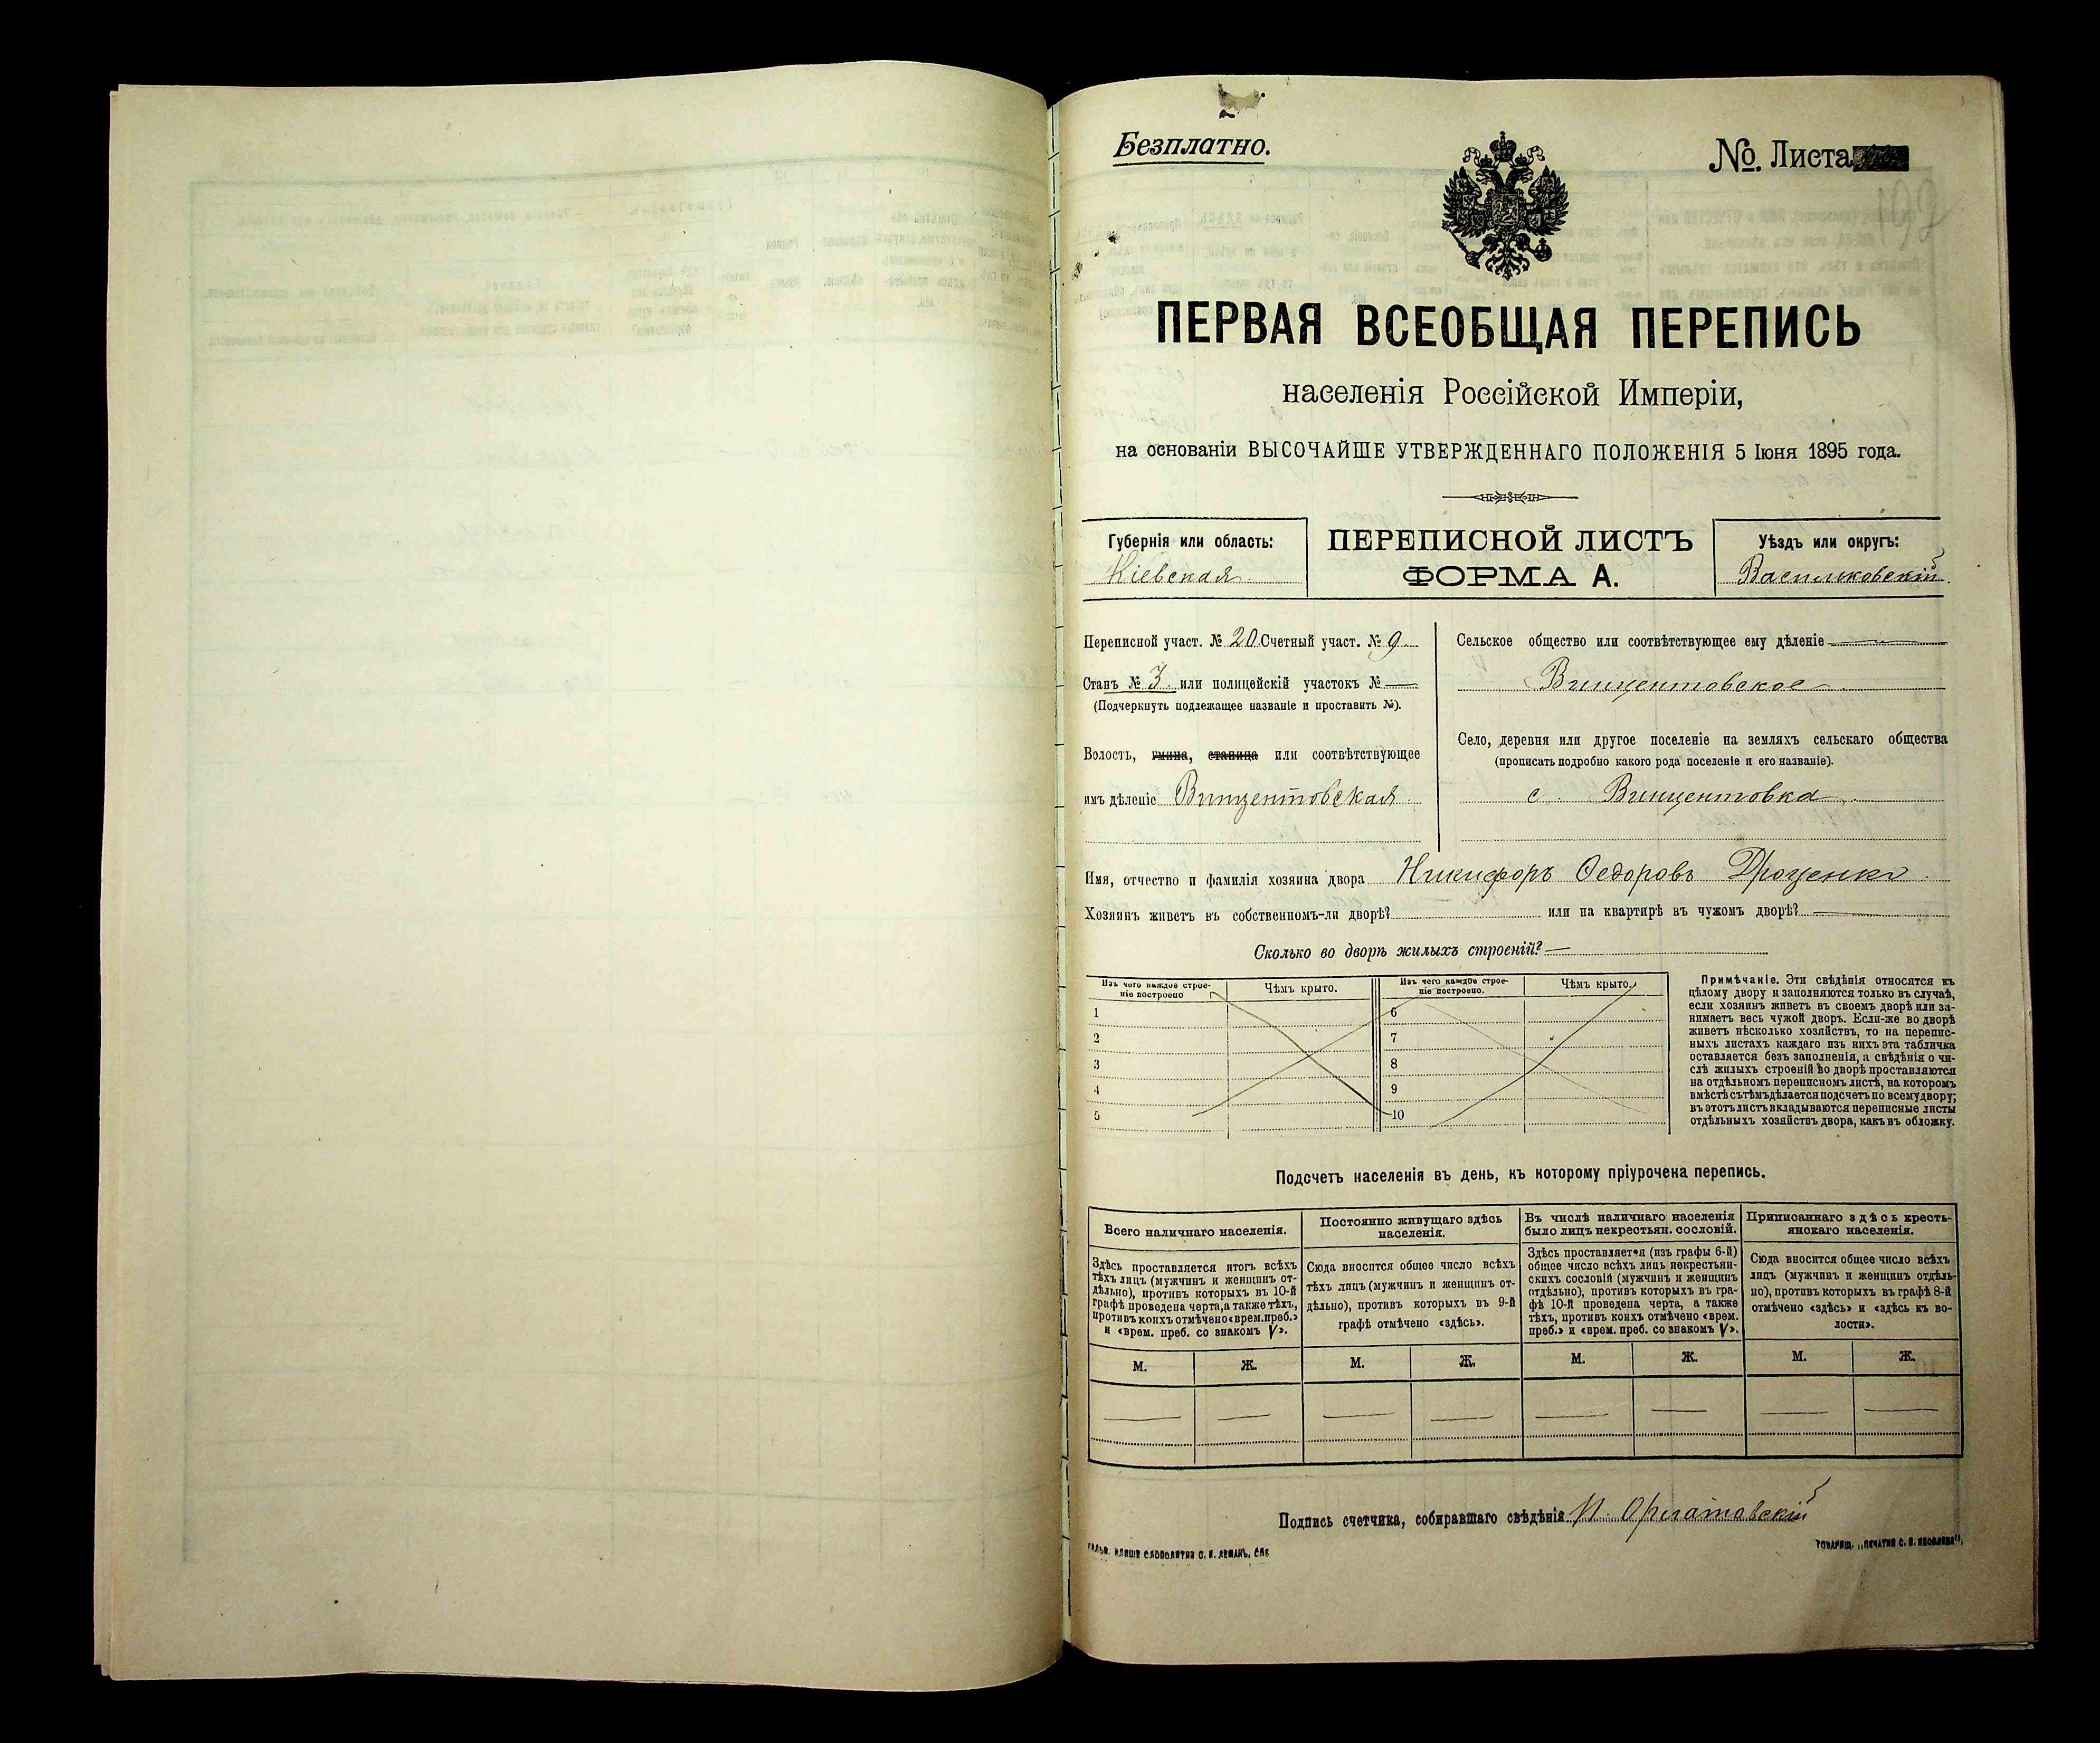 Безплатно.
№ Листа
ПЕРВАЯ ВСЕОБЩАЯ ПЕРЕПИСЬ
населенія Россійской Имперіи,
на основаніи ВЫСОЧАЙШЕ УТВЕРЖДЕННАГО ПОЛОЖЕНІЯ 5 Іюня 1895 года.
Губернія или область:
Кіевская
ПЕРЕПИСНОЙ ЛИСТЪ
ФОРМА А.
Уѣздъ или округъ:
Васильковскій
Переписной участ. № 20. Счетный участ. № 9
Станъ № 3. или полицейскій участокъ № —
(Подчеркнуть подлежащее названіе и проставить №).
Волость, гмина, станица или соотвѣтствующее
имъ дѣленіе Винцентовская
Сельское общество или соотвѣтствующее ему дѣленіе
Винцентовское
Село, деревня или другое поселеніе на земляхъ сельскаго общества
(прописать подробно какого рода поселеніе и его названіе).
с. Винцентовка
Имя, отчество и фамилія хозяина двора Никифоръ Федоровъ Проценко
Хозяинъ живетъ въ собственномъ-ли дворѣ? или на квартирѣ въ чужомъ дворѣ? —
Сколько во дворѣ жилыхъ строеній? —
Изъ чего каждое строе-
ніе построено
Чѣмъ крыто.
1
2
3
4
5
Изъ чего каждое строе-
ніе построено.
Чѣмъ крыто.
6
7
8
9
10
Примѣчаніе. Эти свѣдѣнія относятся къ
цѣлому двору и заполняются только въ случаѣ,
если хозяинъ живетъ въ своемъ дворѣ или за-
нимаетъ весь чужой дворъ. Если-же во дворѣ
живетъ нѣсколько хозяйствъ, то на перепис-
ныхъ листахъ каждаго изъ нихъ эта табличка
оставляется безъ заполненія, а свѣдѣнія о чи-
слѣ жилыхъ строеній во дворѣ проставляются
на отдѣльномъ переписномъ листѣ, на которомъ
вмѣстѣ съ тѣмъ дѣлается подсчетъ по всему двору;
въ этотъ листъ вкладываются переписные листы
отдѣльныхъ хозяйствъ двора, какъ въ обложку.
Подсчетъ населенія въ день, къ которому пріурочена перепись.
Всего наличнаго населенія.
Здѣсь проставляется итогъ всѣхъ
тѣхъ лицъ (мужчинъ и женщинъ от-
дѣльно), противъ которыхъ въ 10-й
графѣ проведена черта, а также тѣхъ,
противъ коихъ отмѣчено «врем. преб.»
и «врем. преб. со знакомъ V».
М. Ж.
— —
Постоянно живущаго здѣсь
населенія.
Сюда вносится общее число всѣхъ
тѣхъ лицъ (мужчинъ и женщинъ от-
дѣльно), противъ которыхъ въ 9-й
графѣ отмѣчено «здѣсь».
М. Ж.
— —
Въ числѣ наличнаго населенія
было лицъ некрестьян. сословій.
Здѣсь проставляется (изъ графы 6-й)
общее число всѣхъ лицъ некрестьян-
скихъ сословій (мужчинъ и женщинъ
отдѣльно), противъ которыхъ въ гра-
фѣ 10-й проведена черта, а также
тѣхъ, противъ коихъ отмѣчено «врем.
преб.» и «врем. преб. со знакомъ V».
М. Ж.
— —
Приписаннаго здѣсь кресть-
янскаго населенія.
Сюда вносится общее число всѣхъ
лицъ (мужчинъ и женщинъ отдѣль-
но), противъ которыхъ въ графѣ 8-й
отмѣчено «здѣсь» и «здѣсь къ во-
лости».
М. Ж.
— —
Подпись счетчика, собиравшаго свѣдѣнія
ТОВАРИЩ. „ПЕЧАТНЯ С. П. ЯКОВЛЕВА",